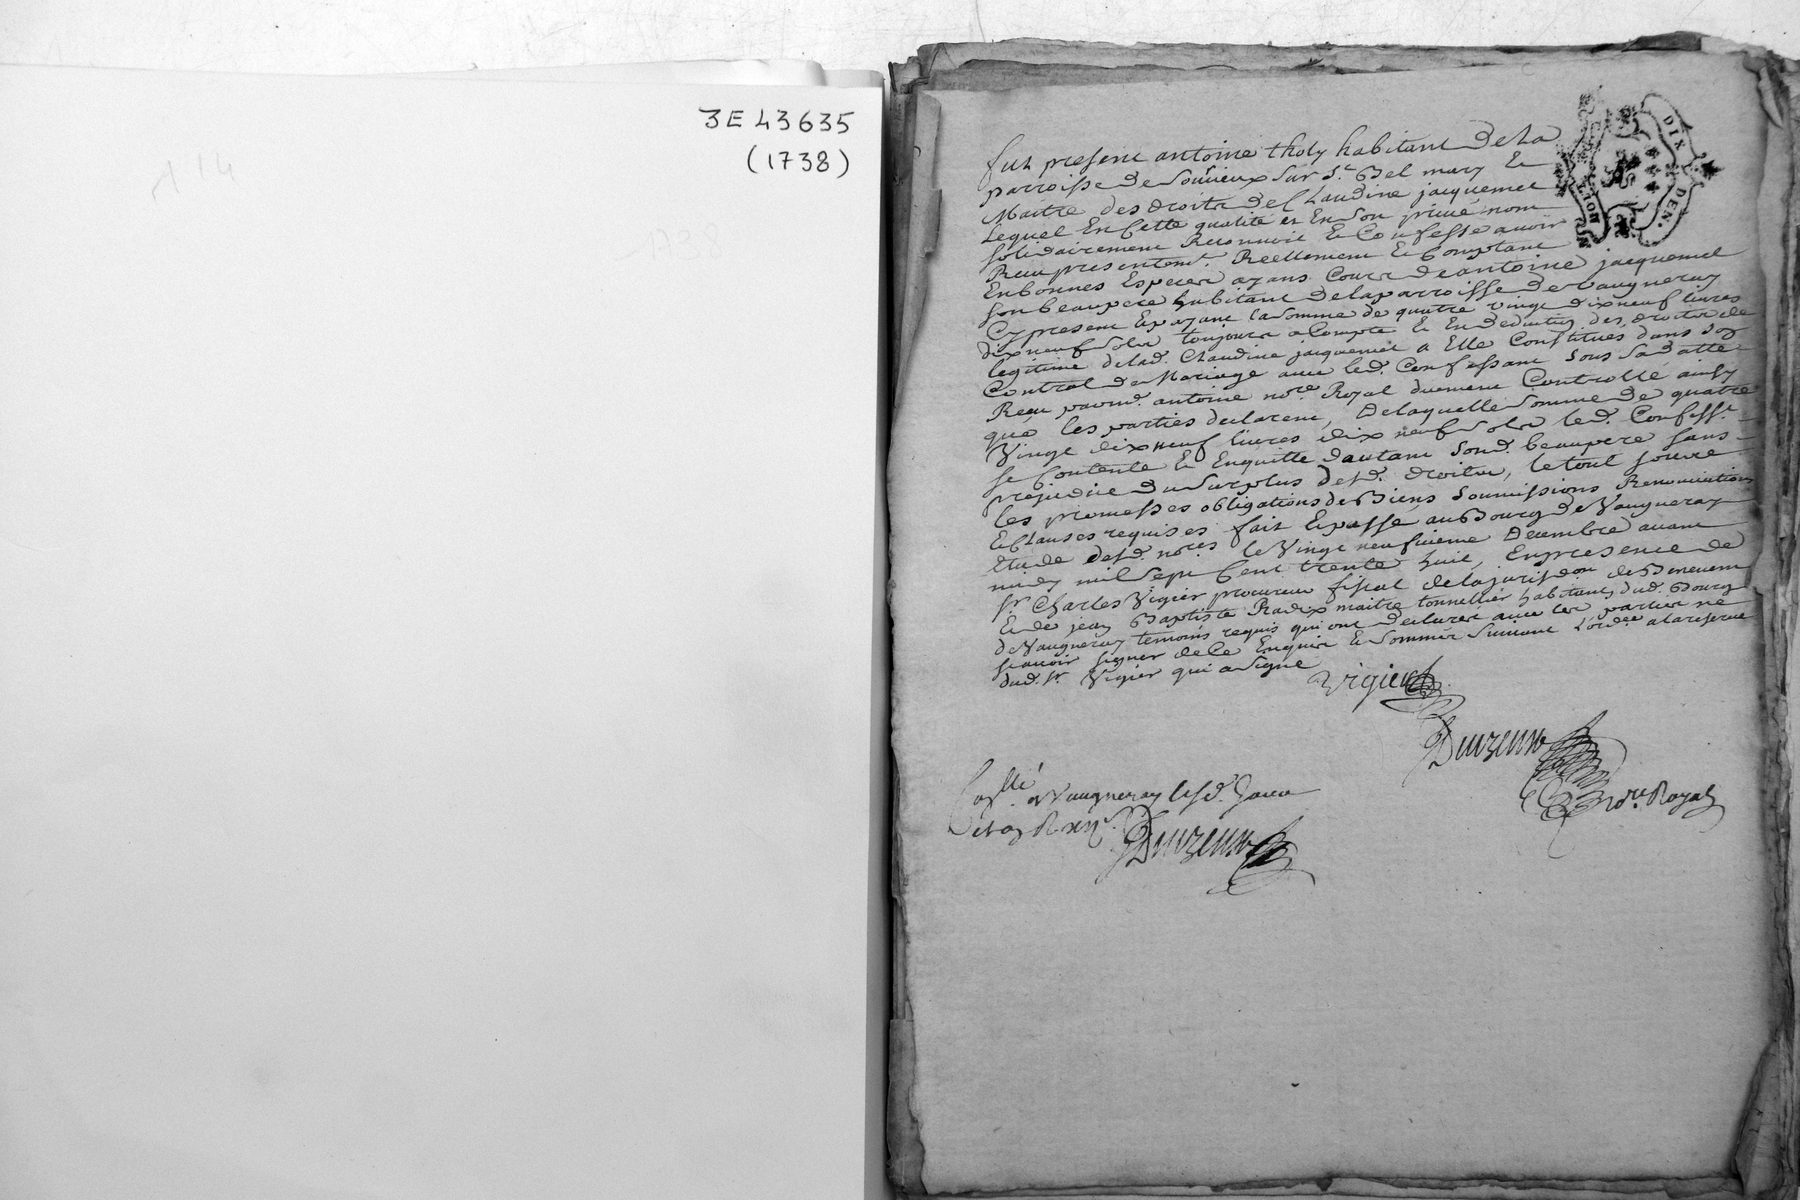 3E 43635
(1738)
114
1738
DIX DEN.
LION
fut present antoine tholy habitant de la
parroisse de Souvieux sur St. Bel mary Et
Maitre des droits de Claudine jacquemet
Lequel En Cette qualité et En son privé nom
solidairement Reconnoit Et Confesse avoir
Reçu presentemt. Reellement Et Comptant
En bonnes Especes ayans Cours de antoine jacquemet
son beaupere habitant de la parroisse de Vaugneray
Cy present Et payant la somme de quatre vingt dix neuf livres
dix neuf sols toujours a Compte Et En deduction des droits de
legitime de lad. Claudine jacquemet a Elle Constitués dans son
Contrat de Mariage avec led. Confessant sous sa datte
Reçu par md. antoine nore. Royal duement Controllé ainsy
que les parties declarent, De laquelle somme de quatre
Vingt dix neuf livres dix neuf sols led. Confesst.
se Contente Et Enquitte d'autant sond. beaupere sans
prejudice du surplus desd. droits, le tout sous
les promesses obligations de Biens soumissions Renonciations
Et Clauses requises fait Et passé au Bourg de Vaugneray
Etude desd. nores le Vingt neufvieme Decembre avant
midy mil sept Cent trente huit, En presence de
Sr. Charles Vigier procureur fiscal de la jurisdon de Benevent
Et de jean Baptiste Radix maitre tonnellier habitans dud. Bourg
de Vaugneray temoins requis qui ont declarés avec les parties ne
scavoir signer de Ce Enquis Et Sommés suivant L'ordce a la reserve
dud. Sr. Vigier qui a signé
Vigier
nore. Royal
a Vaugneray lesd. jour